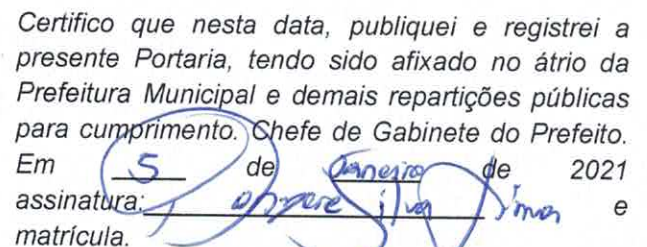 Certifico que nesta data, publiquei e registrei a
presente Portaria, tendo sido afixado no átrio da
Prefeitura Municipal e demais repartições públicas
para cumprimento. Chefe de Gabinete do Prefeito.
Em 5 de Janeiro de 2021
assinatura: silva e
matrícula.